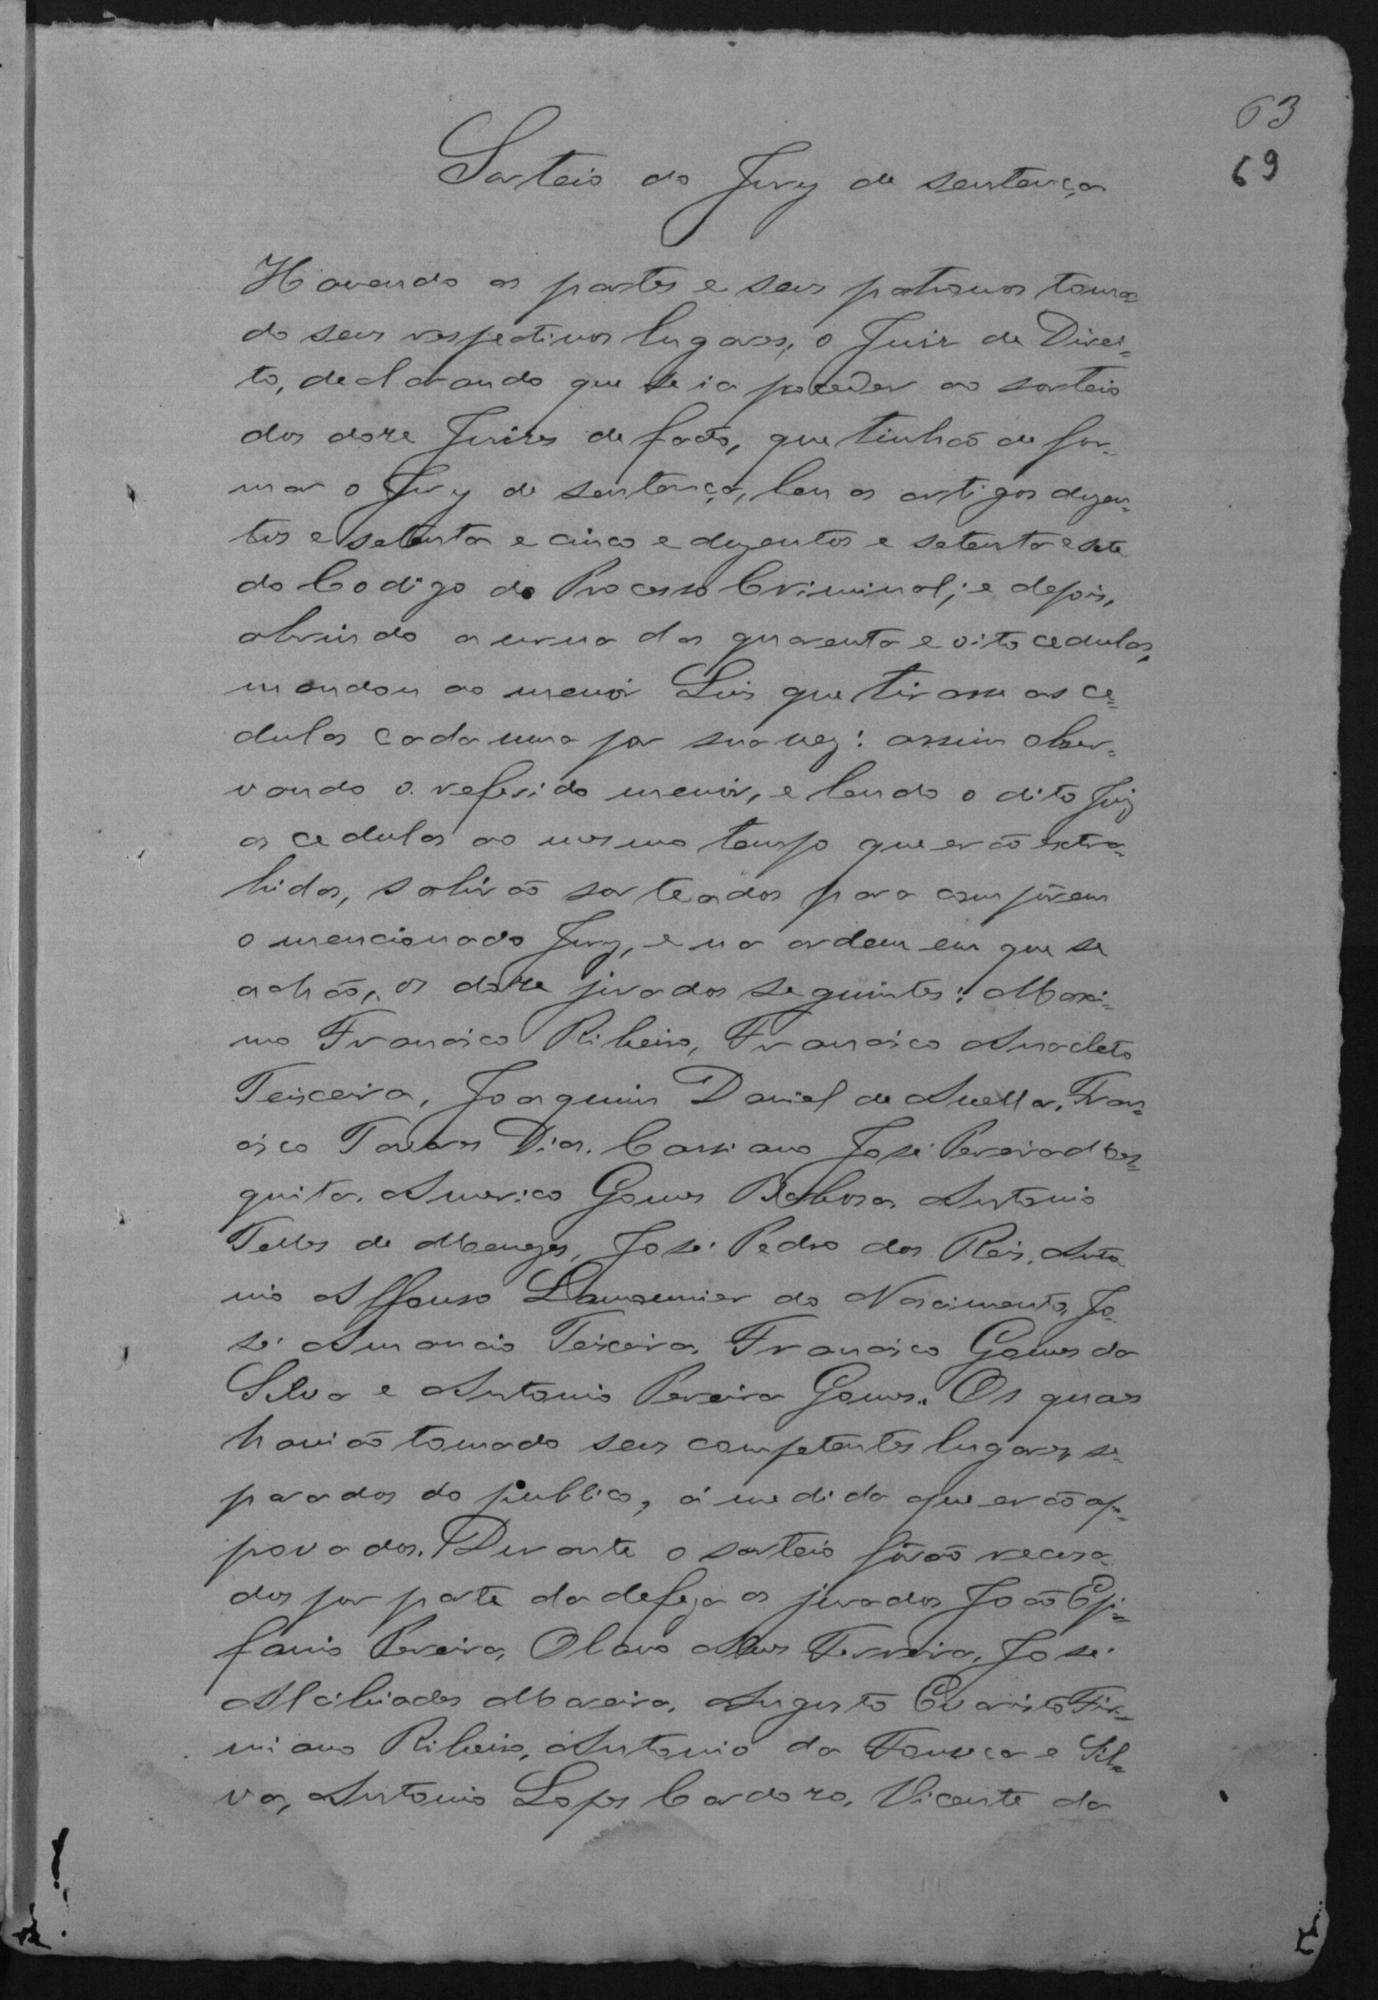 63
69
Sorteio do Jury de sentença
Havendo as partes e seus patronos toma=
do seus respectivos lugares, o Juiz de Direi=
to, declarando que se ia proceder ao sorteio
dos doze Juizes de facto, que tinhão de for-
mar o Jury de sentença, leu os artigos dusen-
tos e setenta e cinco e duzentos e setenta e sete
do Codigo do Processo Criminal; e depois,
abrindo a urna das quarenta e oito cedulas,
mandou ao menór Luis que tirasse as ce=
dulas cada uma por sua vez: assim obser-
vando o referido menór, e lendo o dito Juiz
as cedulas ao mesmo tempo que erão extra-
hidas, sahirão sorteados para compôrem
o mencionado Jury, e na ordem em que se
achão, os doze jurados seguintes: Maxi-
mo Francisco Ribeiro, Francisco Anacleto
Teixeira, Joaquim Daniel de Avellar, Fran=
cisco Tavares Dias, Cassiano José Pereira Mes=
quita, Americo Gomes Barbosa, Antonio
Telles de Menezes, José Pedro dos Reis, Anto
nio Affonso Lamounier do Nascimento, Jo-
sé Amancio Teixeira, Francisco Gomes da
Silva e Antonio Pereira Gomes. Os quaes
havião tomado seus competentes lugares, se-
parados do publico, á medida que erão ap-
provados. Durante o sorteio fôrão recusa-
dos por parte da defeza os jurados João Epi=
fanio Pereira, Olavo Alves Ferreira, José
Alcibiades Moreira, Augusto Evaristo Fir-
miano Ribeiro, Antonio da Fonseca e Sil-
va, Antonio Lopes Cardozo, Vicente da